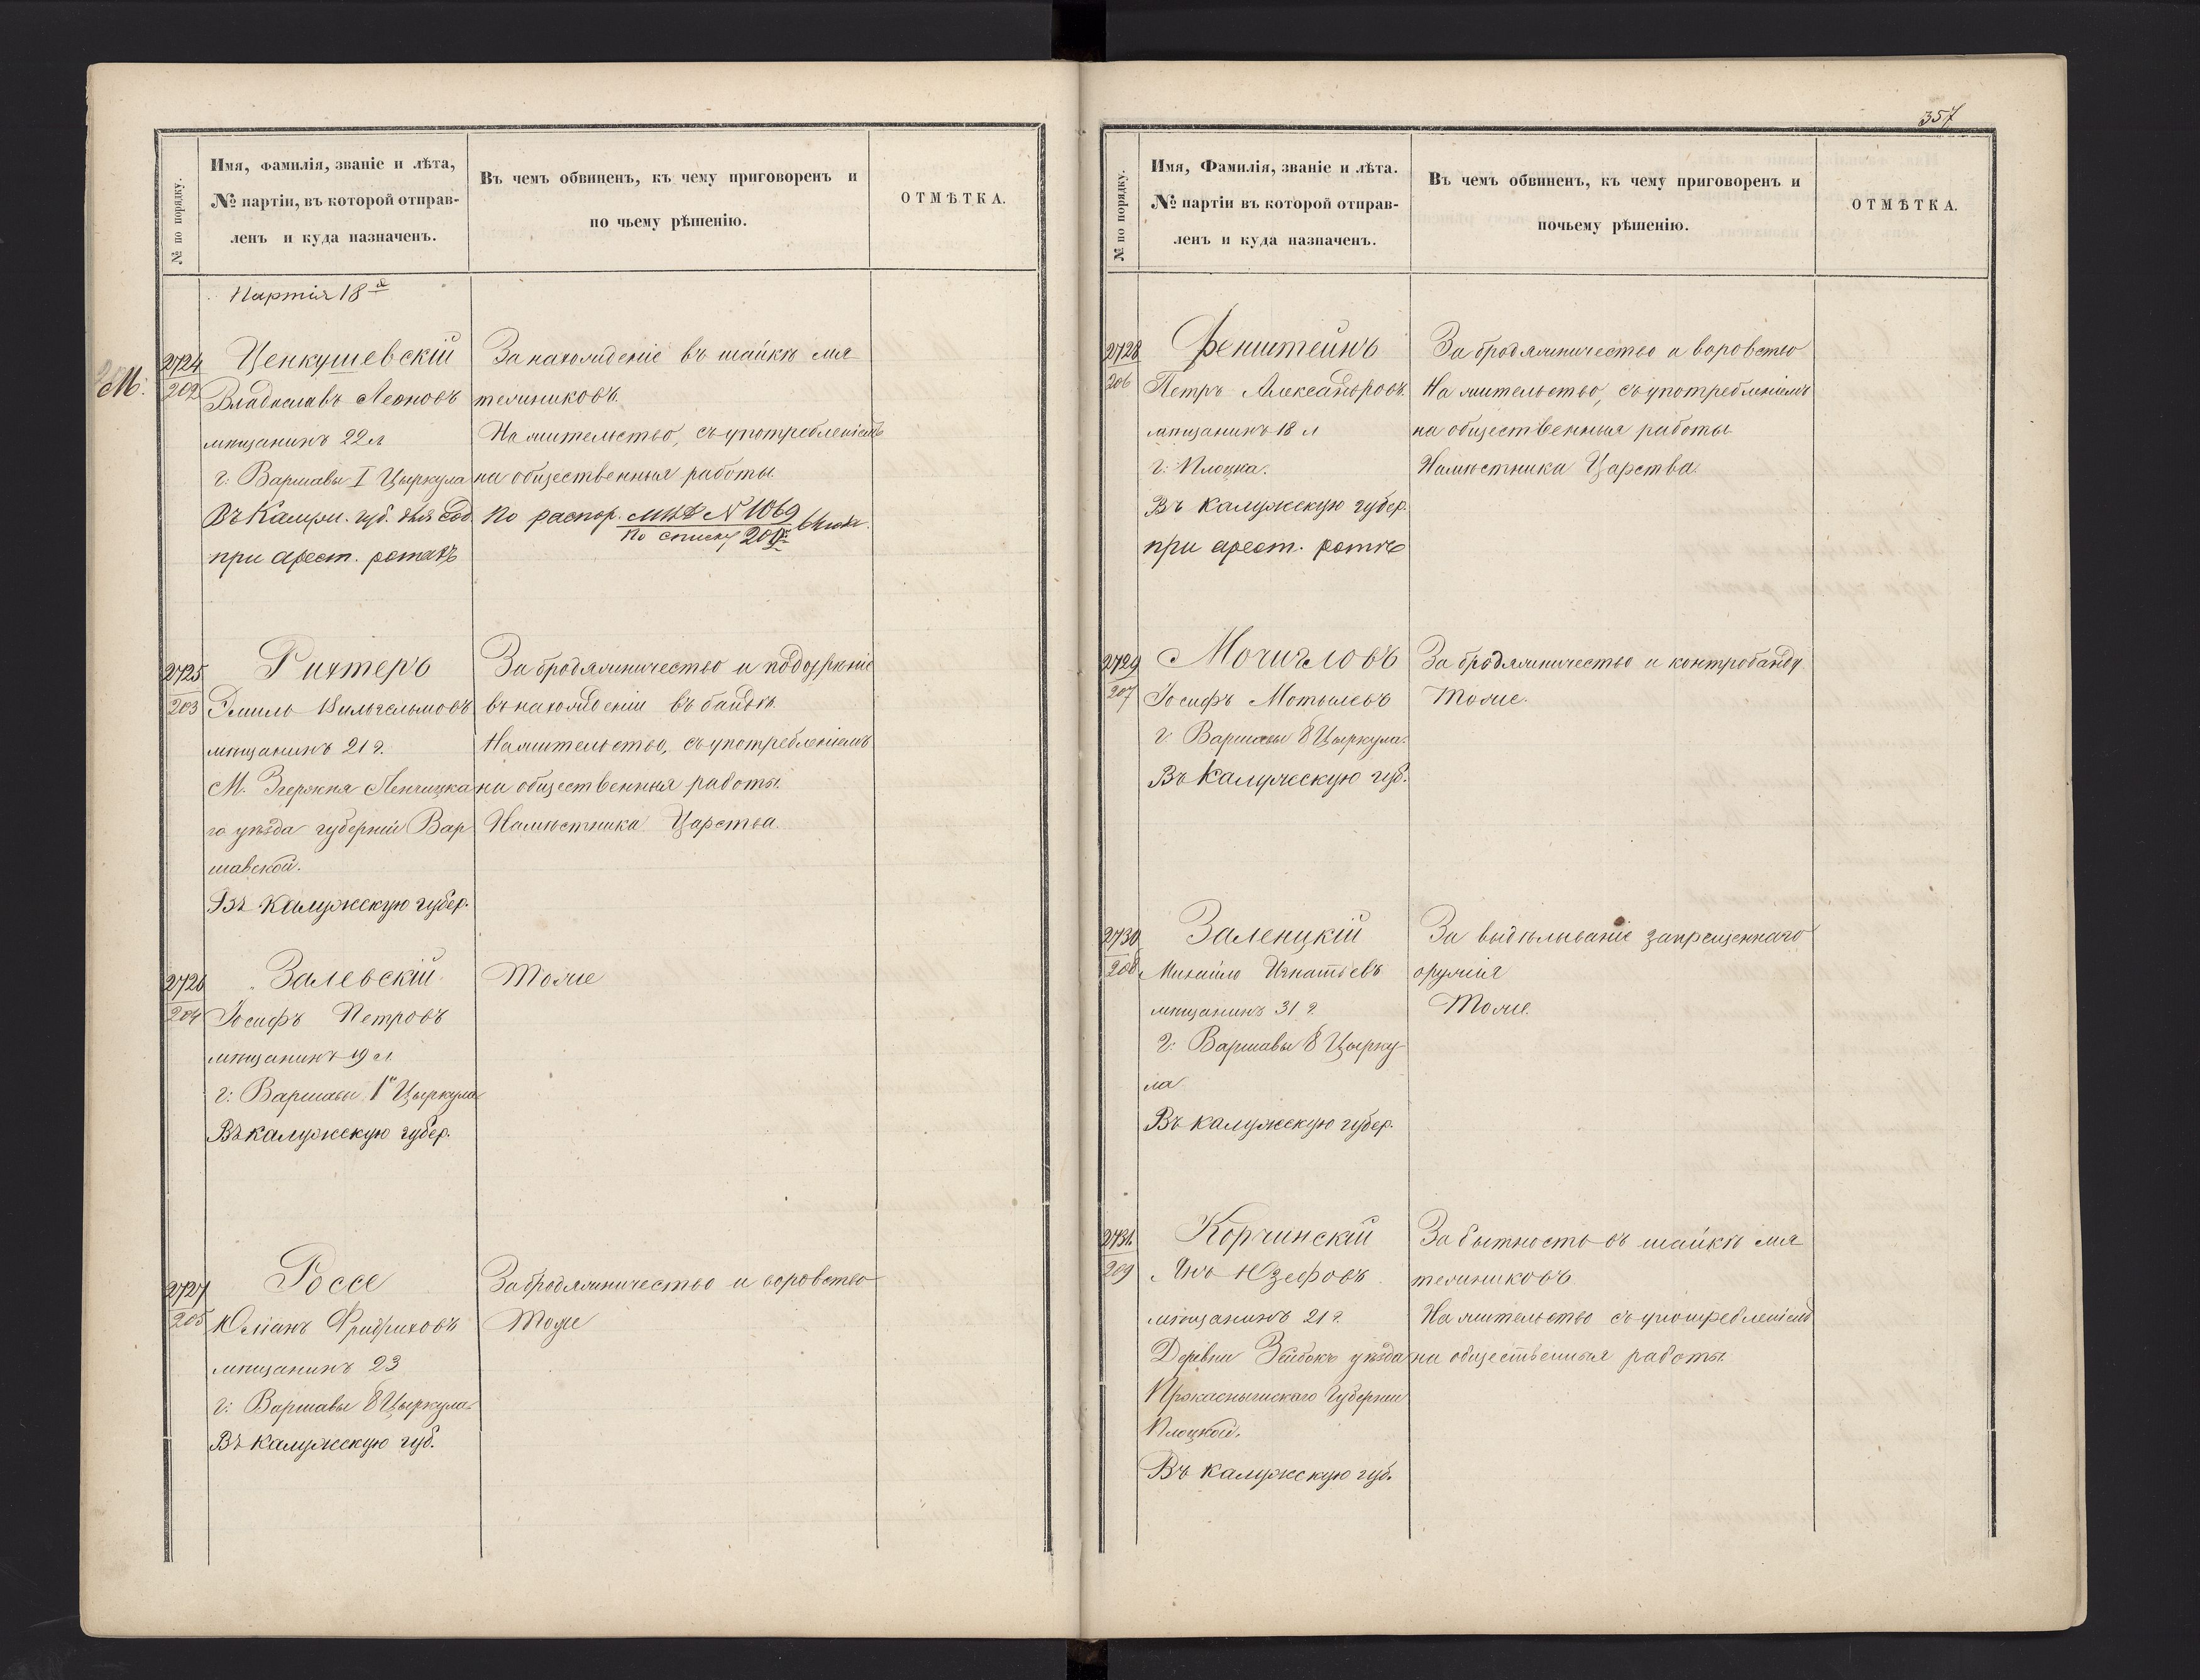 № по порядку.
Имя, фамилія, званіе и лѣта,
№ партіи, въ которой отправ-
ленъ и куда назначенъ.
Въ чемъ обвиненъ, къ чему приговоренъ и
по чьему рѣшенію.
ОТМѢТКА.
Партія 18я
М:
2724
202
Ценкушевскій
Владиславъ Леоновъ
мѣщанинъ 22 л
г: Варшавы I Цыркула
Въ Калуж. губ. для сод.
при арест. ротахъ
За нахожденіе въ шайкѣ мя
тежниковъ.
На жительство, съ употребленіемъ
на общественныя работы.
По распор. МВД № 1069
по списку 20
2725
203
Рихтеръ
Эмиль Вильгельмовъ
мѣщанинъ 21 г.
М. Згержня Ленчицка
го уѣзда губерніи Вар
шавской.
Въ Калужскую губер.
За бродяжничество и подозрѣніе
въ нахожденіи въ бандѣ.
На жительство, съ употребленіемъ
на общественныя работы.
Намѣстника Царства.
2726
204
Залевскій
Іосифъ Петровъ
мѣщанинъ 19 л
г: Варшавы 1го Цыркула
Въ Калужскую губер.
Тоже
2727
205
Россе
Юліанъ Фридриховъ
мѣщанинъ 23
г: Варшавы 8 Цыркула
Въ Калужскую губ.
За бродяжничество и воровство
Тоже
357
№ по порядку.
Имя, Фамилія, званіе и лѣта.
№ партіи въ которой отправ-
ленъ и куда назначенъ.
Въ чемъ обвиненъ, къ чему приговоренъ и
почьему рѣшенію.
ОТМѢТКА.
2728
206
Фенштейнъ
Петръ Александровъ.
мѣщанинъ 18 л
г: Плоцка.
Въ Калужскую губер.
при арест. ротѣ
За бродяжничество и воровство
На жительство, съ употребленіемъ
на общественныя работы
Намѣстника Царства.
2729
207
Мочигловъ
Іосифъ Мотылевъ
г. Варшавы 8 Цыркула.
Въ Калужскую губ.
За бродяжничество и контробанду
Тоже.
2730
208
Заленцкій
Михайло Игнатьевъ
мѣщанинъ 31 г
г: Варшавы 8 Цырку-
ла
Въ Калужскую губер.
За выдѣлываніе запрещеннаго
оружія
Тоже.
2731.
209
Корчинскій
Янъ Юзефовъ
мѣщанинъ 21 г.
Деревни уѣзда
Пржаснышскаго Губерніи
Плоцкой.
Въ Калужскую губ.
За бытность въ шайкѣ мя
тежниковъ
На жительство съ употребленіемъ
на общественныя работы.